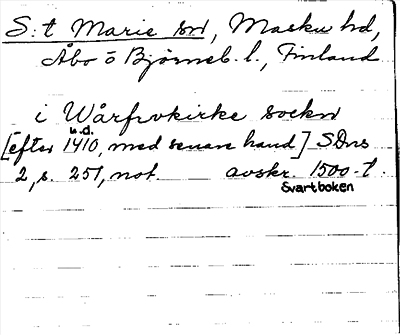 S:t Marie sn, Masku hd,
Åbo o Björneb. l., Finland
i Wårfrvkirke sockn
u.d.
[efter 1410, med senare hand] SDns
2, s. 257, not. avskr. 1500-t.
Svartboken